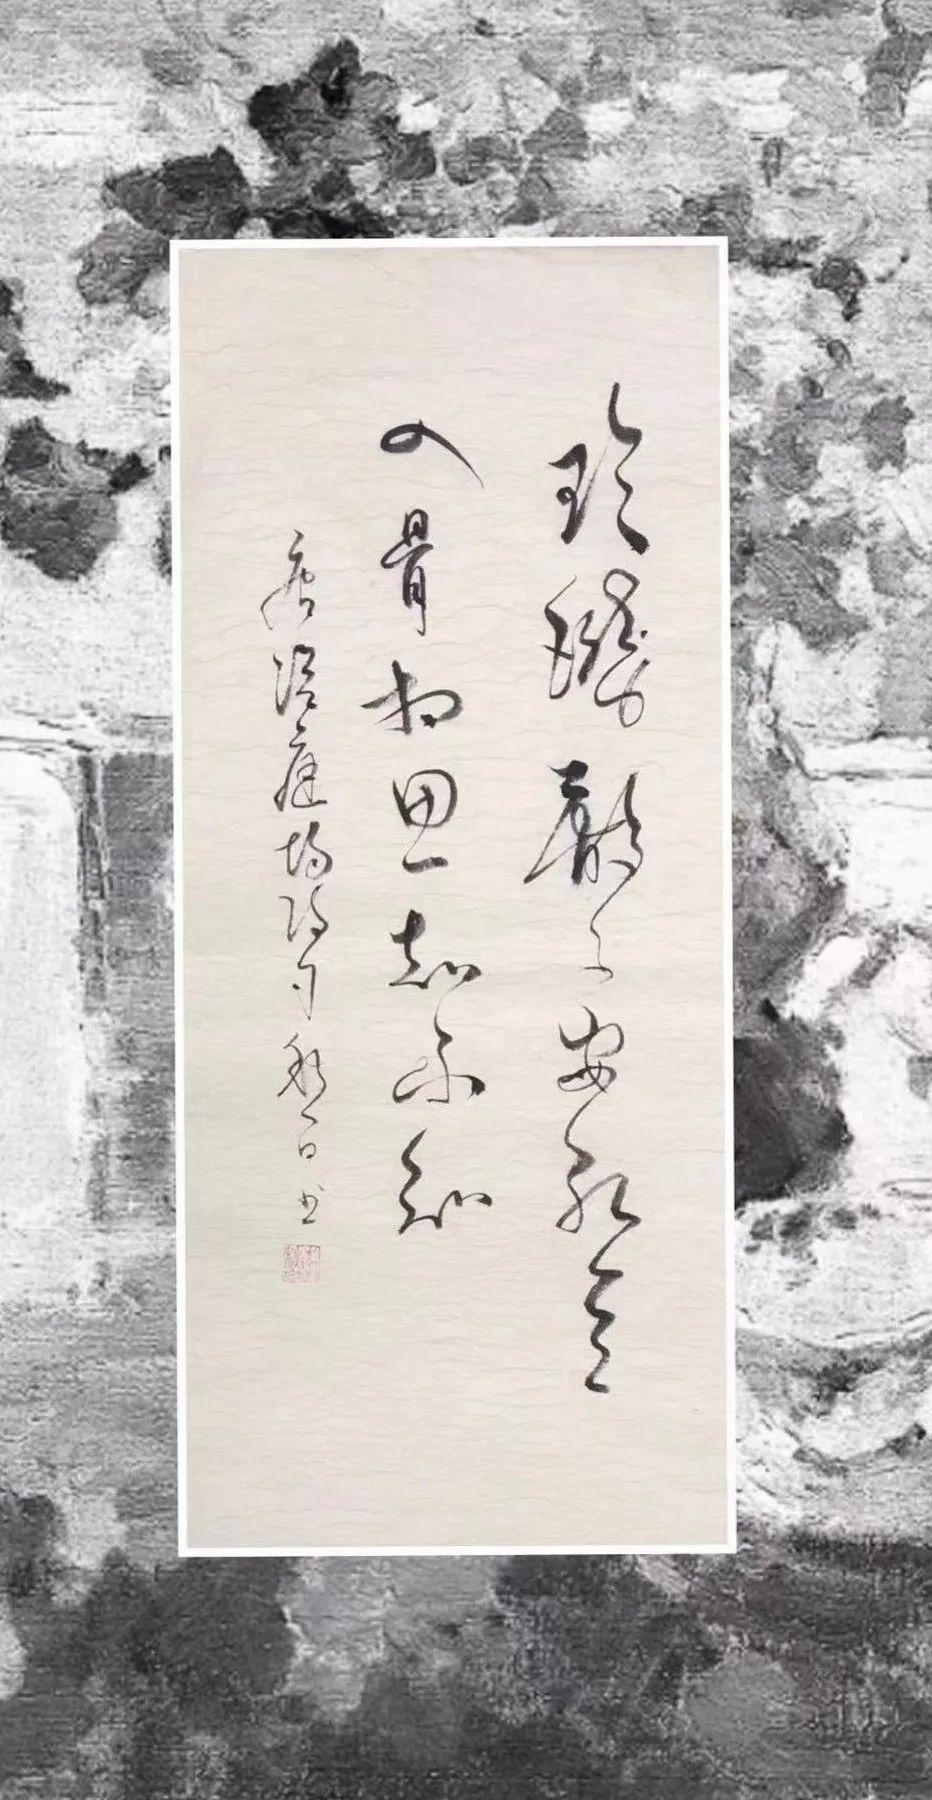 玲珑骰子安红豆
入骨相思知不知
唐温庭筠诗句
书